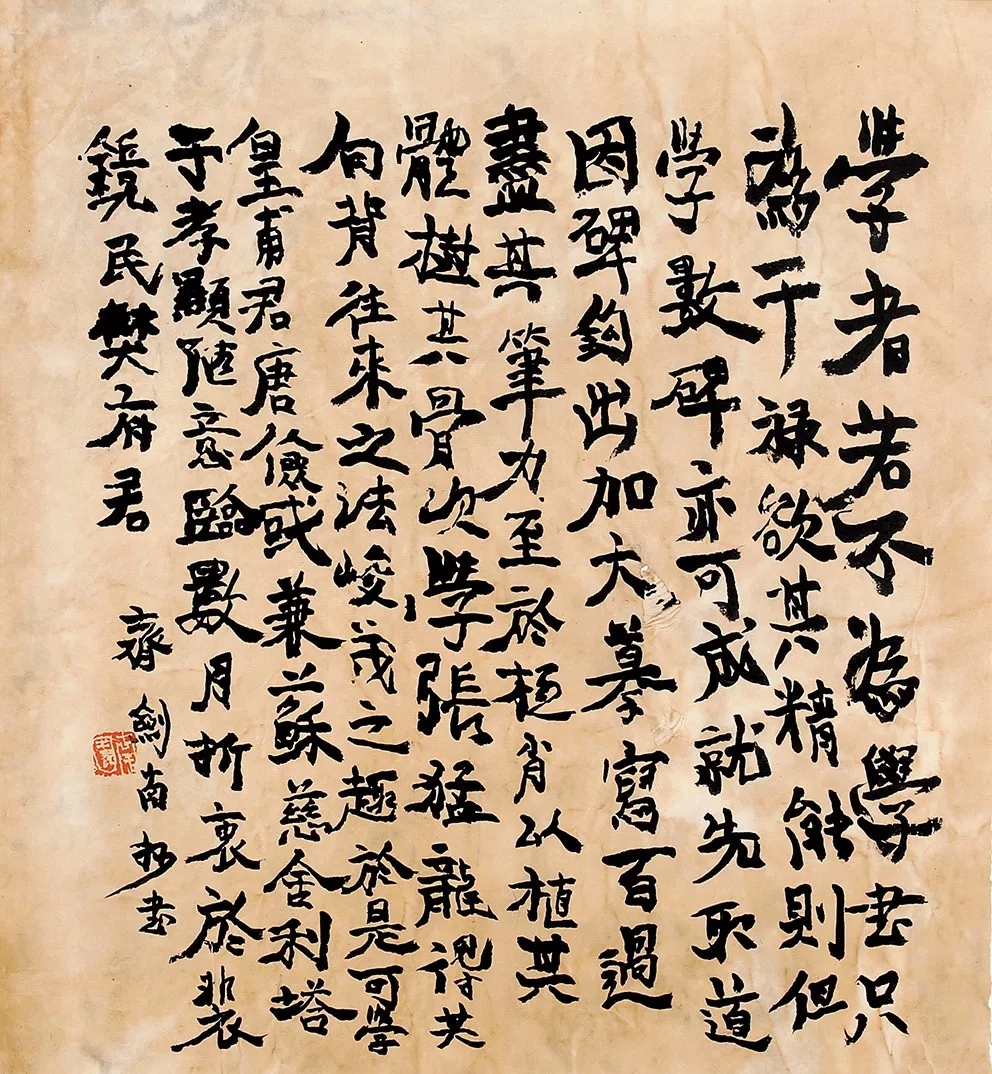 學者若不為學書只
為干祿欲其精能則但
學數碑亦可成就先取道
因碑鈎出加大摹寫百過
盡其筆力至於極肖以植其
體樹其骨次學張猛龍得其
向背往來之法峻茂之趣於是可學
皇甫君唐儉或兼蘇慈舍利塔
于孝顯隨意臨數月折衷於裴
鏡民樊府君
齊劍南抄書